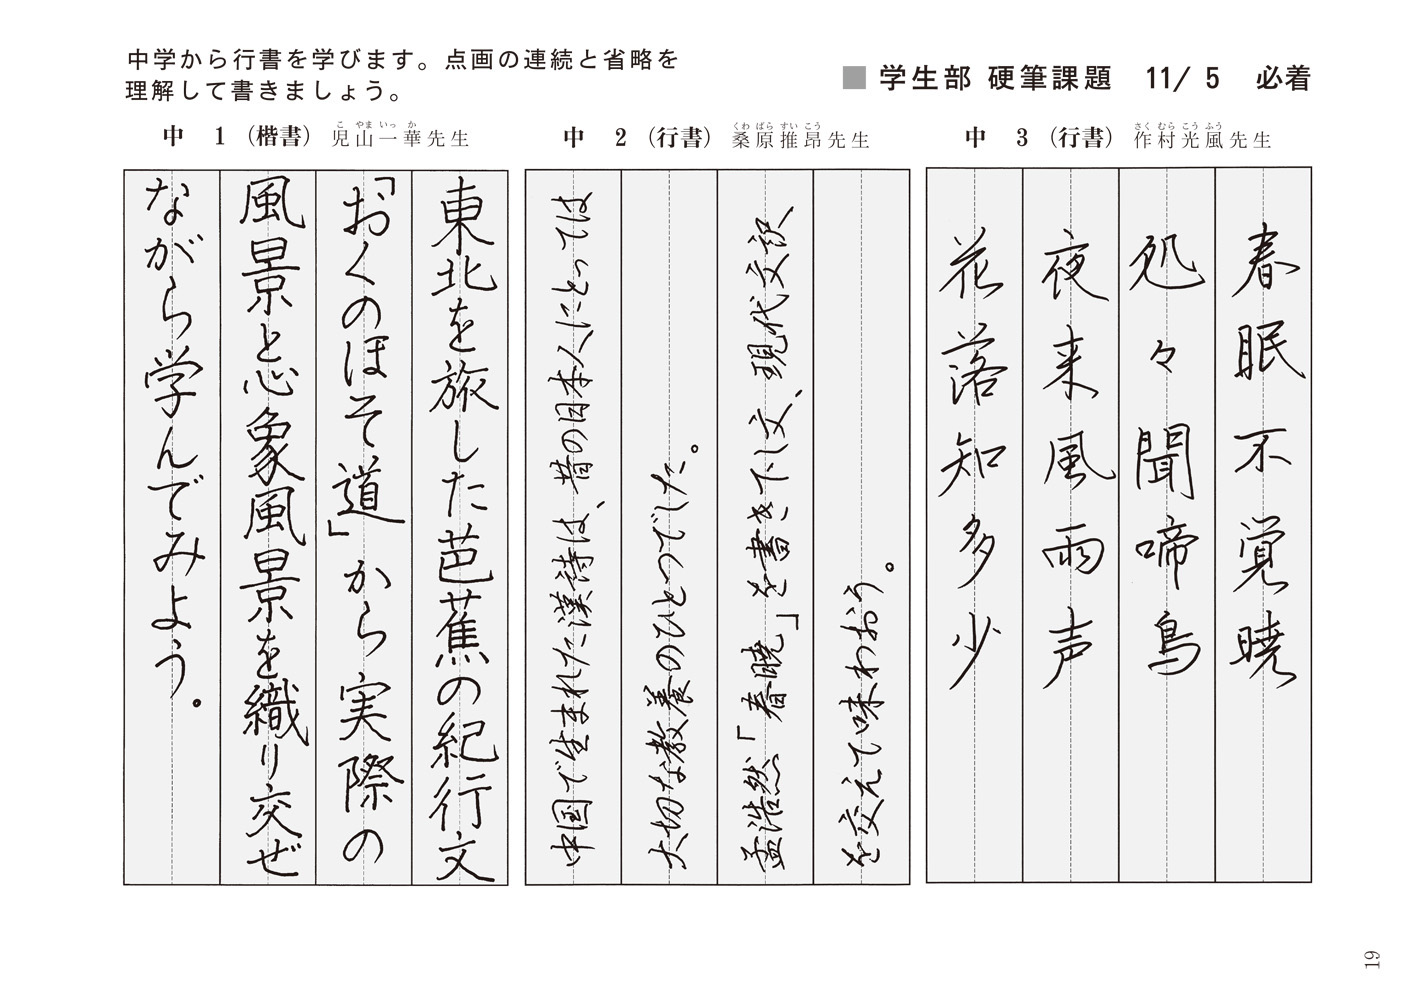 中学から行書を学びます。点画の連続と省略を
理解して書きましょう。
■ 学生部 硬筆課題 11/ 5 必着
中 1（楷書） 児山一華先生
こ やま いっ か
東北を旅した芭蕉の紀行文
「おくのほそ道」から実際の
風景と心象風景を織り交ぜ
ながら学んでみよう。
中 2（行書） 桑原推昂先生
くわ ばら すい こう
中国で生まれた漢詩は、昔の日本人にとっては
大切な教養のひとつでした。
孟浩然「春暁」を書き下し文、現代文訳
を交えて味わおう。
中 3（行書） 作村光風先生
さく むら こう ふう
春眠不覚暁
処々聞啼鳥
夜来風雨声
花落知多少
19